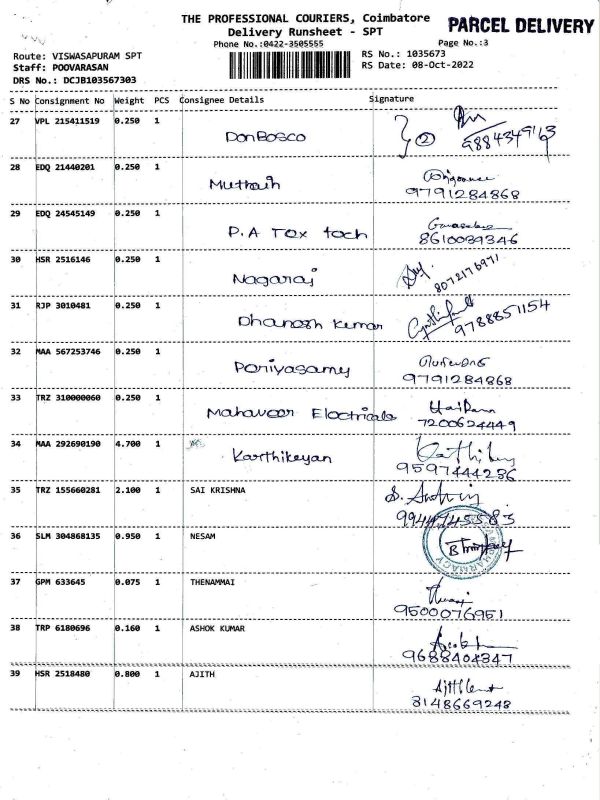 THE PROFESSIONAL COURIERS, Coimbatore
PARCEL DELIVERY
Delivery Runsheet - SPT
Phone No.:0422-3505555
Page No.:3
Route: VISWASAPURAM SPT
RS No.: 1035673
Staff: POOVARASAN
RS Date: 08-Oct-2022
DRS No.: DCJB103567303
S No Consignment No Weight PCS Consignee Details Signature
27 VPL 215411519 0.250 1
DonBosco
2 9884349163
28 EDQ 21440201 0.250 1
9791284868
29 EDQ 24545149 0.250 1
P.A Tex tech
8610039346
30 HSR 2516146 0.250 1
Nagaraj
8072176971
31 RJP 3010481 0.250 1
Dhanesh kumar
9788851154
32 MAA 567253746 0.250 1
Periyasamy
9791284868
33 TRZ 310000060 0.250 1
Mahaveer Electricals
7200624449
34 MAA 292690190 4.700 1
Karthikeyan
9597444236
35 TRZ 155660281 2.100 1 SAI KRISHNA
9944745583
36 SLM 304868135 0.950 1 NESAM
PHARMACY
37 GPM 633645 0.075 1 THENNAMMAI
9500076951
38 TRP 6180696 0.160 1 ASHOK KUMAR
9688404347
39 HSR 2518480 0.800 1 AJITH
8148669248